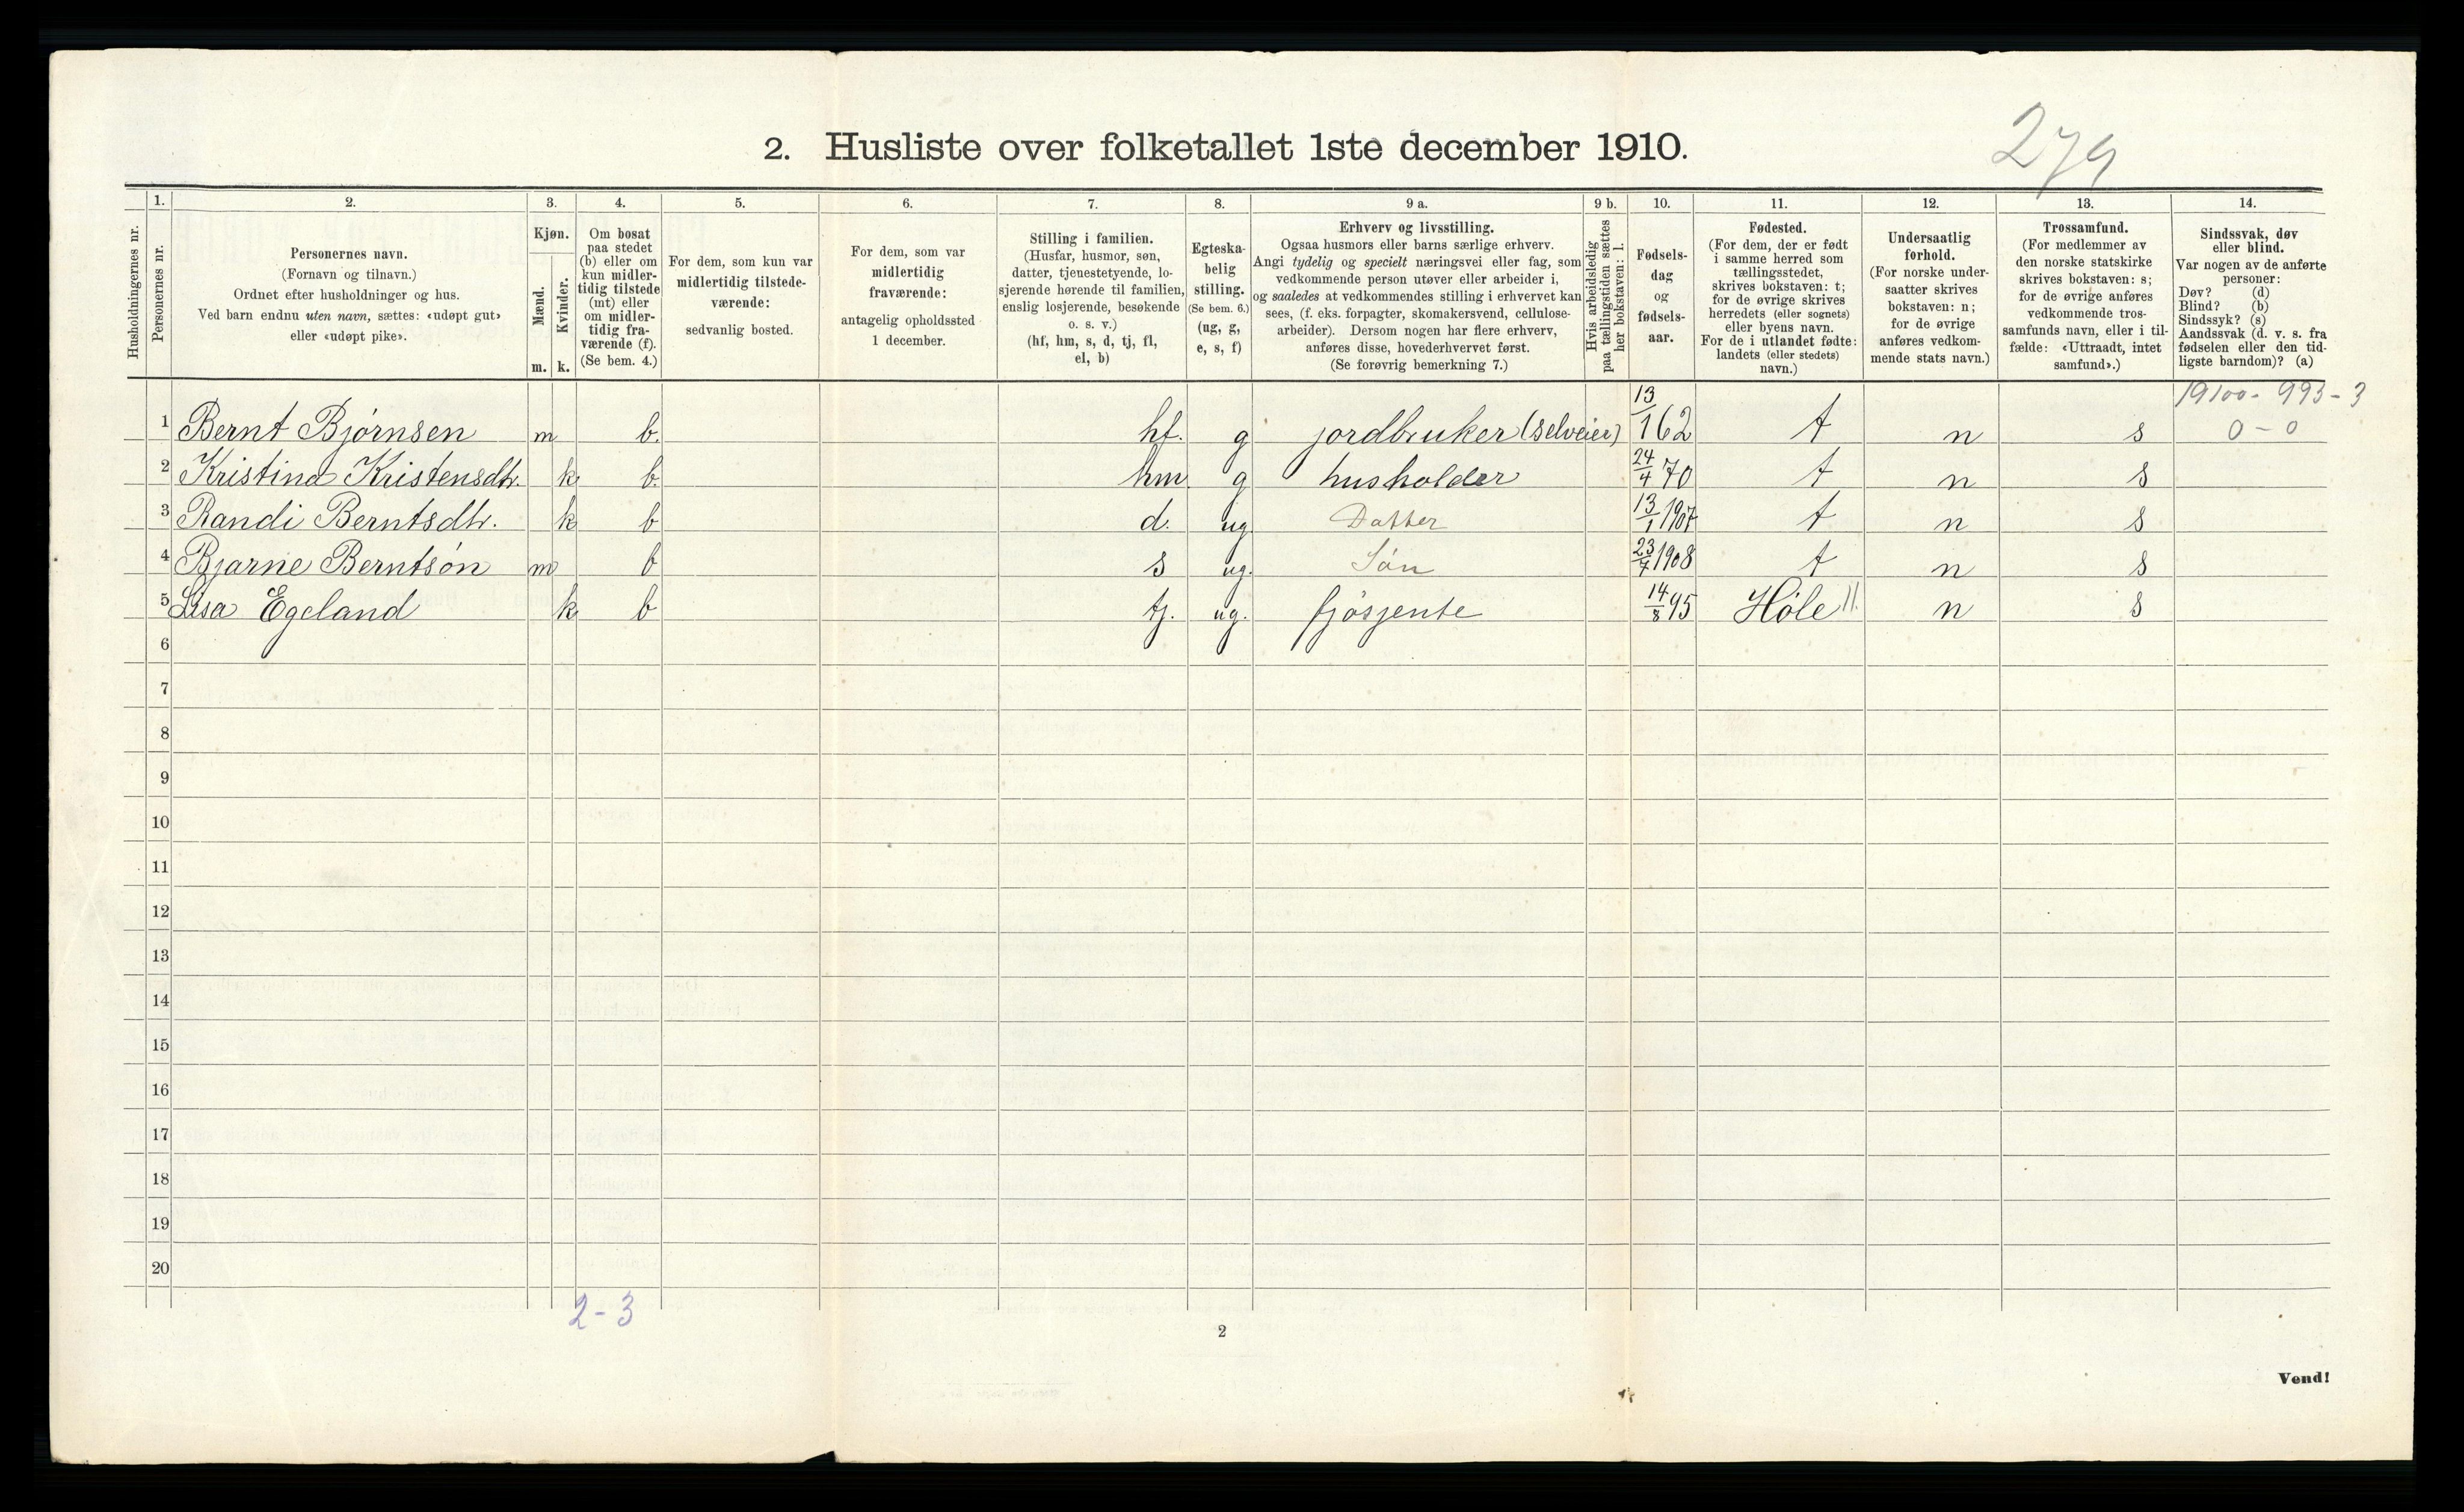 2. Husliste over folketallet 1ste december 1910.
279
Husholdningernes nr.
1.
Personernes nr.
2.
Personernes navn.
(Fornavn og tilnavn.)
Ordnet efter husholdninger og hus.
Ved barn endnu uten navn, sættes: «udøpt gut»
eller «udøpt pike».
3.
Kjøn.
Mænd.
Kvinder.
m. k.
4.
Om bosat
paa stedet
(b) eller om
kun midler-
tidig tilstede
(mt) eller
om midler-
tidig fra-
værende (f).
(Se bem. 4.)
5.
For dem, som kun var
midlertidig tilstede-
værende:
sedvanlig bosted.
6.
For dem, som var
midlertidig
fraværende:
antagelig opholdssted
1 december.
7.
Stilling i familien.
(Husfar, husmor, søn,
datter, tjenestetyende, lo-
sjerende hørende til familien,
enslig losjerende, besøkende
o. s. v.)
(hf, hm, s, d, tj, fl,
el, b)
8.
Egteska-
belig
stilling.
(Se bem. 6.)
(ug, g,
e, s, f)
9 a.
Erhverv og livsstilling.
Ogsaa husmors eller barns særlige erhverv.
Angi tydelig og specielt næringsvei eller fag, som
vedkommende person utøver eller arbeider i,
og saaledes at vedkommendes stilling i erhvervet kan
sees, (f. eks. forpagter, skomakersvend, cellulose-
arbeider). Dersom nogen har flere erhverv,
anføres disse, hovederhvervet først.
(Se forøvrig bemerkning 7.)
9 b.
Hvis arbeidsledig
paa tællingstiden sættes
her bokstaven: l.
10.
Fødsels-
dag
og
fødsels-
aar.
11.
Fødested.
(For dem, der er født
i samme herred som
tællingsstedet,
skrives bokstaven: t;
for de øvrige skrives
herredets (eller sognets)
eller byens navn.
For de i utlandet fødte:
landets (eller stedets)
navn.)
12.
Undersaatlig
forhold.
(For norske under-
saatter skrives
bokstaven: n;
for de øvrige
anføres vedkom-
mende stats navn.)
13.
Trossamfund.
(For medlemmer av
den norske statskirke
skrives bokstaven: s;
for de øvrige anføres
vedkommende tros-
samfunds navn, eller i til-
fælde: «Uttraadt, intet
samfund».)
14.
Sindssvak, døv
eller blind.
Var nogen av de anførte
personer:
Døv? (d)
Blind? (b)
Sindssyk? (s)
Aandssvak (d. v. s. fra
fødselen eller den tid-
ligste barndom)? (a)
19100 - 993 - 3
1 Bernt Bjørnsen m b. hf. g jordbruker (selveier) 13/1 62 t n s 0 - 0
2 Kristina Kristensdtr. k b. hm g husholder 24/4 70 t n s
3 Randi Berntsdtr. k b d. ug Datter 13/1 1907 t n s
4 Bjarne Berntsøn m b s ug. Søn 23/7 1908 t n s
5 Lisa Egeland k b tj. ug. fjøsjente 14/8 95 Høle 11. n s
6
7
8
9
10
11
12
13
14
15
16
17
18
19
20
2 - 3
2
Vend!